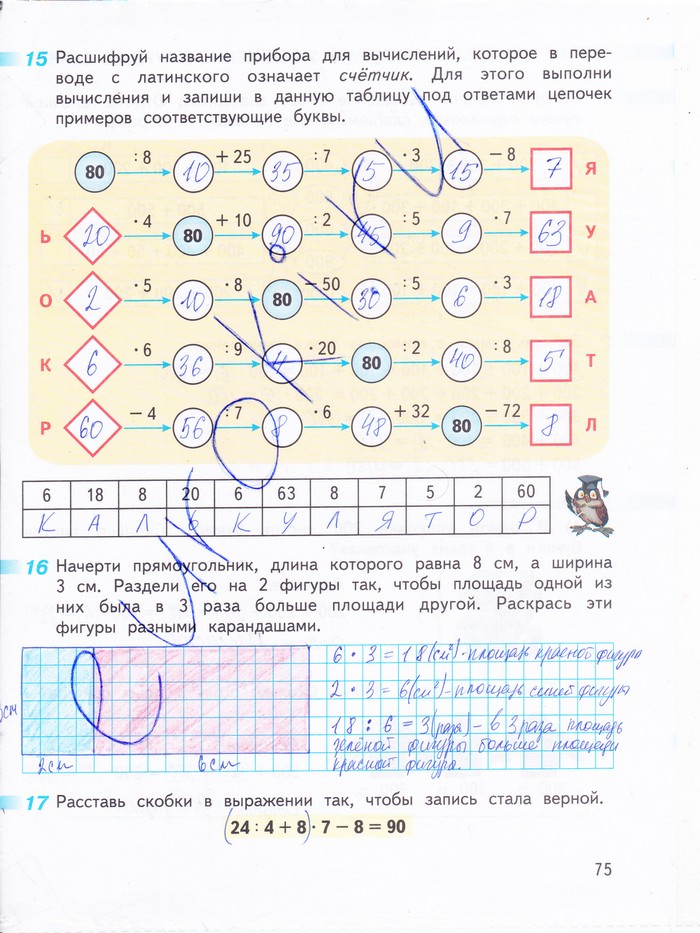 15 Расшифруй название прибора для вычислений, которое в пере-
воде с латинского означает счётчик. Для этого выполни
вычисления и запиши в данную таблицу под ответами цепочек
примеров соответствующие буквы.
80 :8 10 +25 35 :7 5 ·3 15 −8 7 Я
Ь 20 ·4 80 +10 90 :2 45 :5 9 ·7 63 У
О 2 ·5 10 ·8 80 −50 30 :5 6 ·3 18 А
К 6 ·6 36 :9 4 ·20 80 :2 40 :8 5 Т
Р 60 −4 56 :7 8 ·6 48 +32 80 −72 8 Л
6 18 8 20 6 63 8 7 5 2 60
К А Л Ь К У Л Я Т О Р
16 Начерти прямоугольник, длина которого равна 8 см, а ширина
3 см. Раздели его на 2 фигуры так, чтобы площадь одной из
них была в 3 раза больше площади другой. Раскрась эти
фигуры разными карандашами.
6 · 3 = 18 (см²) - площадь красной фигуры
2 · 3 = 6 (см²) - площадь синей фигуры
18 : 6 = 3 (раза) - в 3 раза площадь
зелёной фигуры больше площади
красной фигура.
см
2 см 6 см
17 Расставь скобки в выражении так, чтобы запись стала верной.
(24 : 4 + 8) · 7 − 8 = 90
75